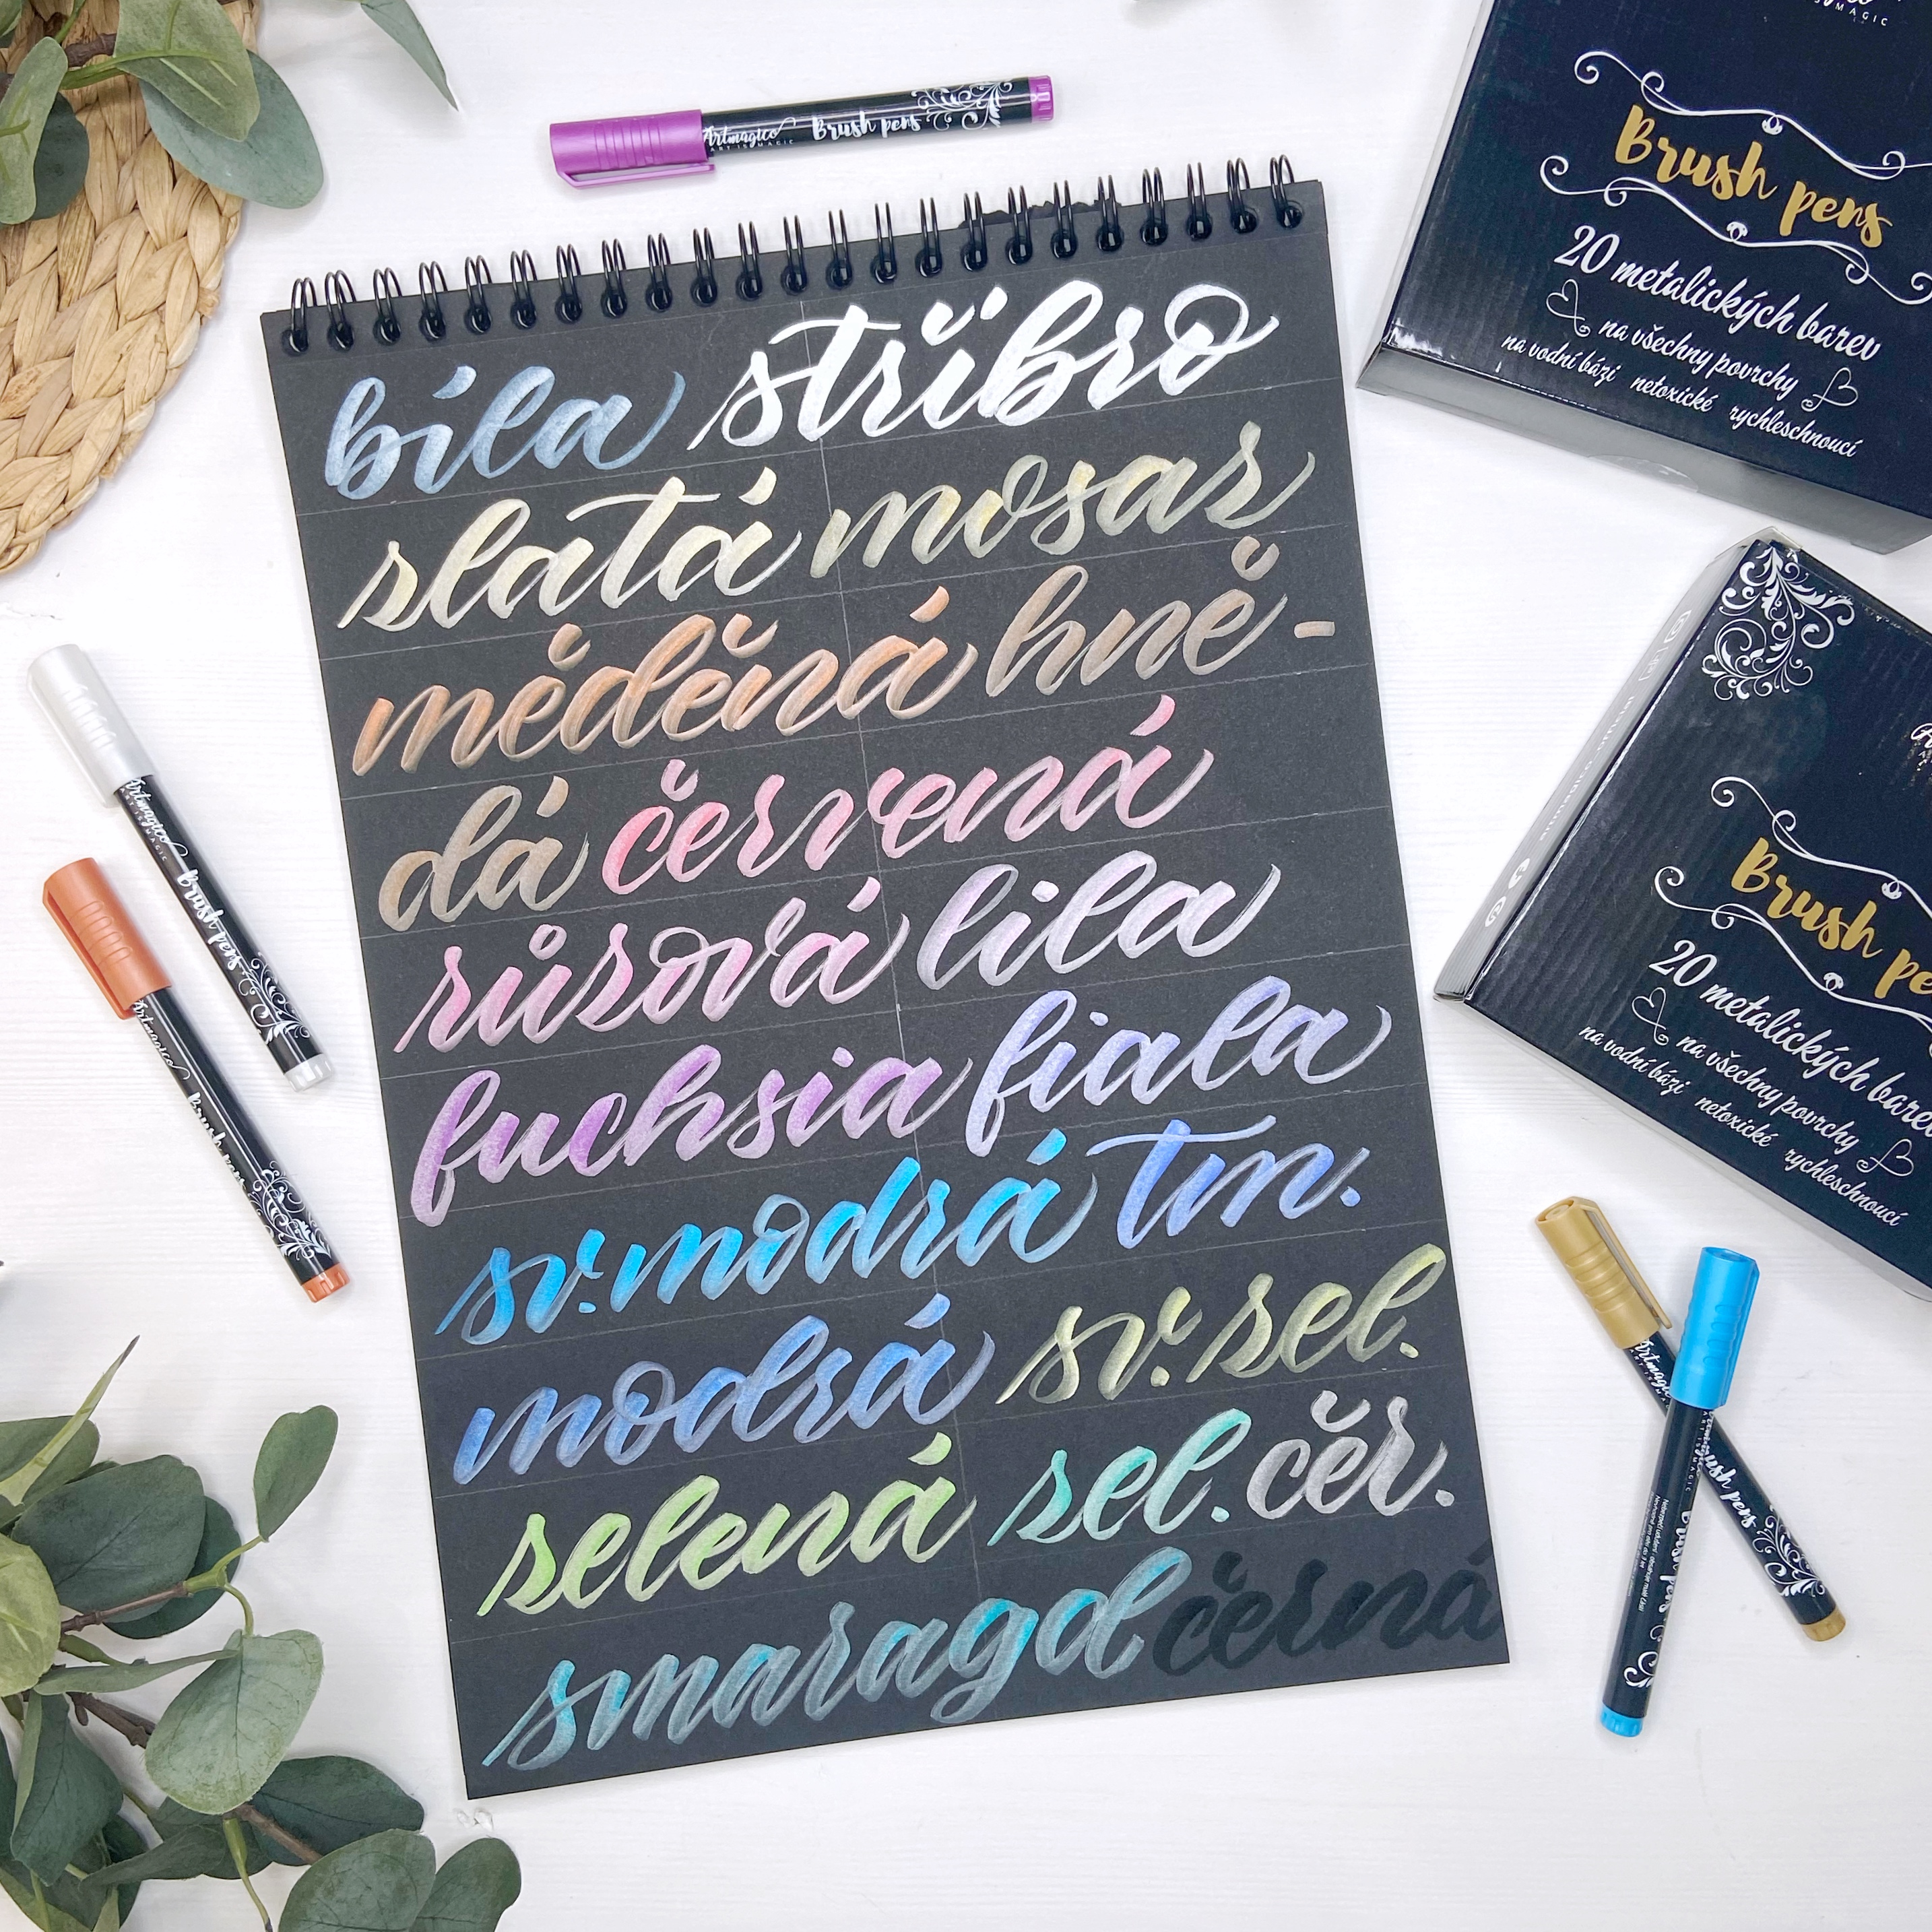 Artmagico Brush pens
ART IS MAGIC
bílá stříbro
zlatá mosaz
měděná hně-
dá červená
růžová lila
fuchsia fiala
sv. modrá tm.
modrá sv. zel.
zelená zel. čer.
smaragd černá
MAGIC
Brush pens
20 metalických barev
na všechny povrchy
na vodní bázi netoxické rychleschnoucí
Brush pe
20 metalických barev
na všechny povrchy
na vodní bázi netoxické rychleschnoucí
Artmagico Brush pens
Artmagico Brush pens
Artmagico Brush pens
Brush pens